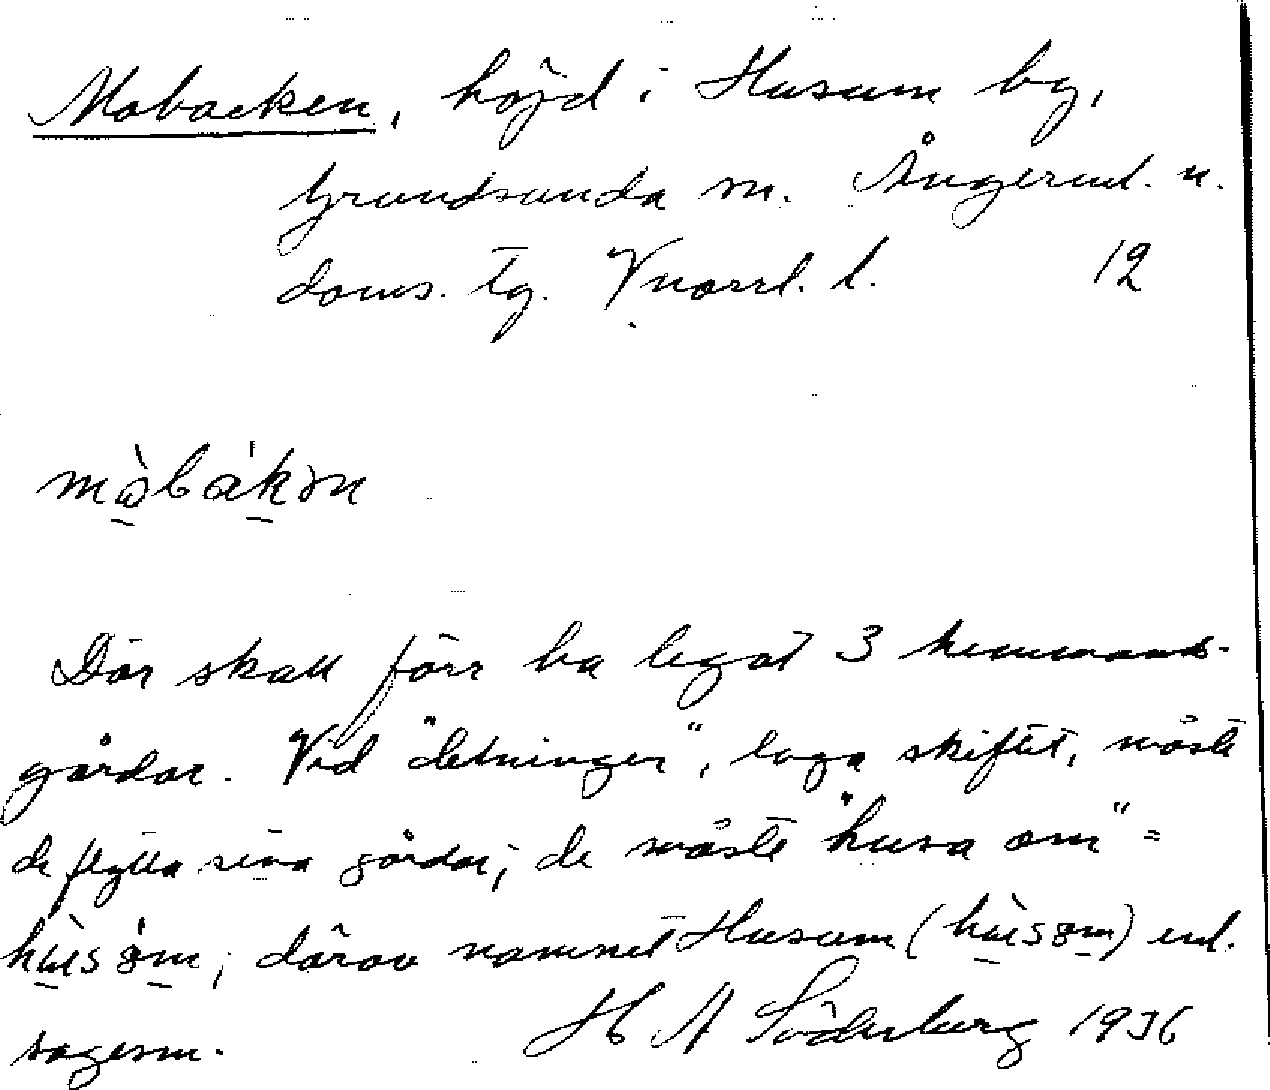 Mobacken, höjd i Husum by,
Grundsunda sn. Ångerml. n.
doms. tg. Vnorrl. l. 12
mòbákən
Där skall förr ha legat 3 hemmans-
gårdar. Vid "delningen", laga skiftet, måste
de flytta sina gårdar; de måste "husa om" =
hùsóm; därav namnet Husum (hùsom) enl.
sagesm. H A Söderberg 1936